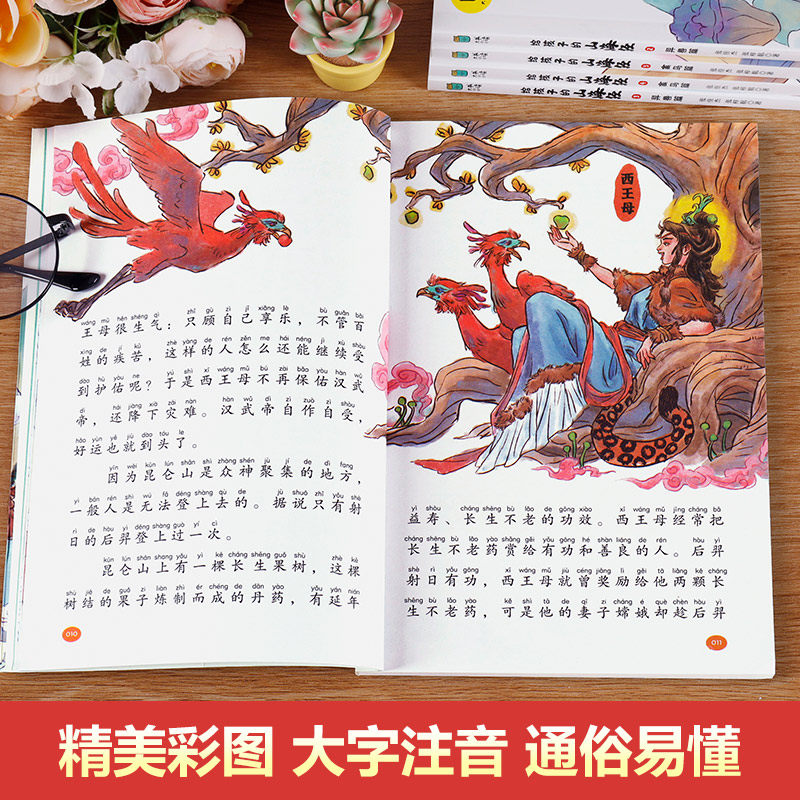 给孩子的山海经
给孩子的山海经
给孩子的山海经
给孩子的山海经
西王母
wáng mǔ hěn shēng qì zhǐ gù zì jǐ xiǎng lè bù guǎn bǎi
王母很生气：只顾自己享乐，不管百
xìng de jí kǔ zhè yàng de rén zěn me hái néng jì xù shòu
姓的疾苦，这样的人怎么还能继续受
dào hù yòu ne yú shì xī wáng mǔ bù zài bǎo yòu hàn wǔ
到护佑呢？于是西王母不再保佑汉武
dì hái jiàng xià zāi nàn hàn wǔ dì zì zuò zì shòu
帝，还降下灾难。汉武帝自作自受，
hǎo yùn yě jiù dào tóu le
好运也就到头了。
yīn wèi kūn lún shān shì zhòng shén jù jí de dì fang
因为昆仑山是众神聚集的地方，
yì bān rén shì wú fǎ dēng shàng qù de jù shuō zhǐ yǒu shè
一般人是无法登上去的。据说只有射
rì de hòu yì dēng shàng guo yí cì
日的后羿登上过一次。
kūn lún shān shang yǒu yì kē cháng shēng guǒ shù zhè kē
昆仑山上有一棵长生果树，这棵
shù jiē de guǒ zi liàn zhì ér chéng de dān yào yǒu yán nián
树结的果子炼制而成的丹药，有延年
010
yì shòu cháng shēng bù lǎo de gōng xiào xī wáng mǔ jīng cháng bǎ
益寿、长生不老的功效。西王母经常把
cháng shēng bù lǎo yào shǎng gěi yǒu gōng hé shàn liáng de rén hòu yì
长生不老药赏给有功和善良的人。后羿
shè rì yǒu gōng xī wáng mǔ jiù céng jiǎng lì gěi tā liǎng kē cháng
射日有功，西王母就曾奖励给他两颗长
shēng bù lǎo yào kě shì tā de qī zi cháng é què chèn hòu yì
生不老药，可是他的妻子嫦娥却趁后羿
011
精美彩图 大字注音 通俗易懂